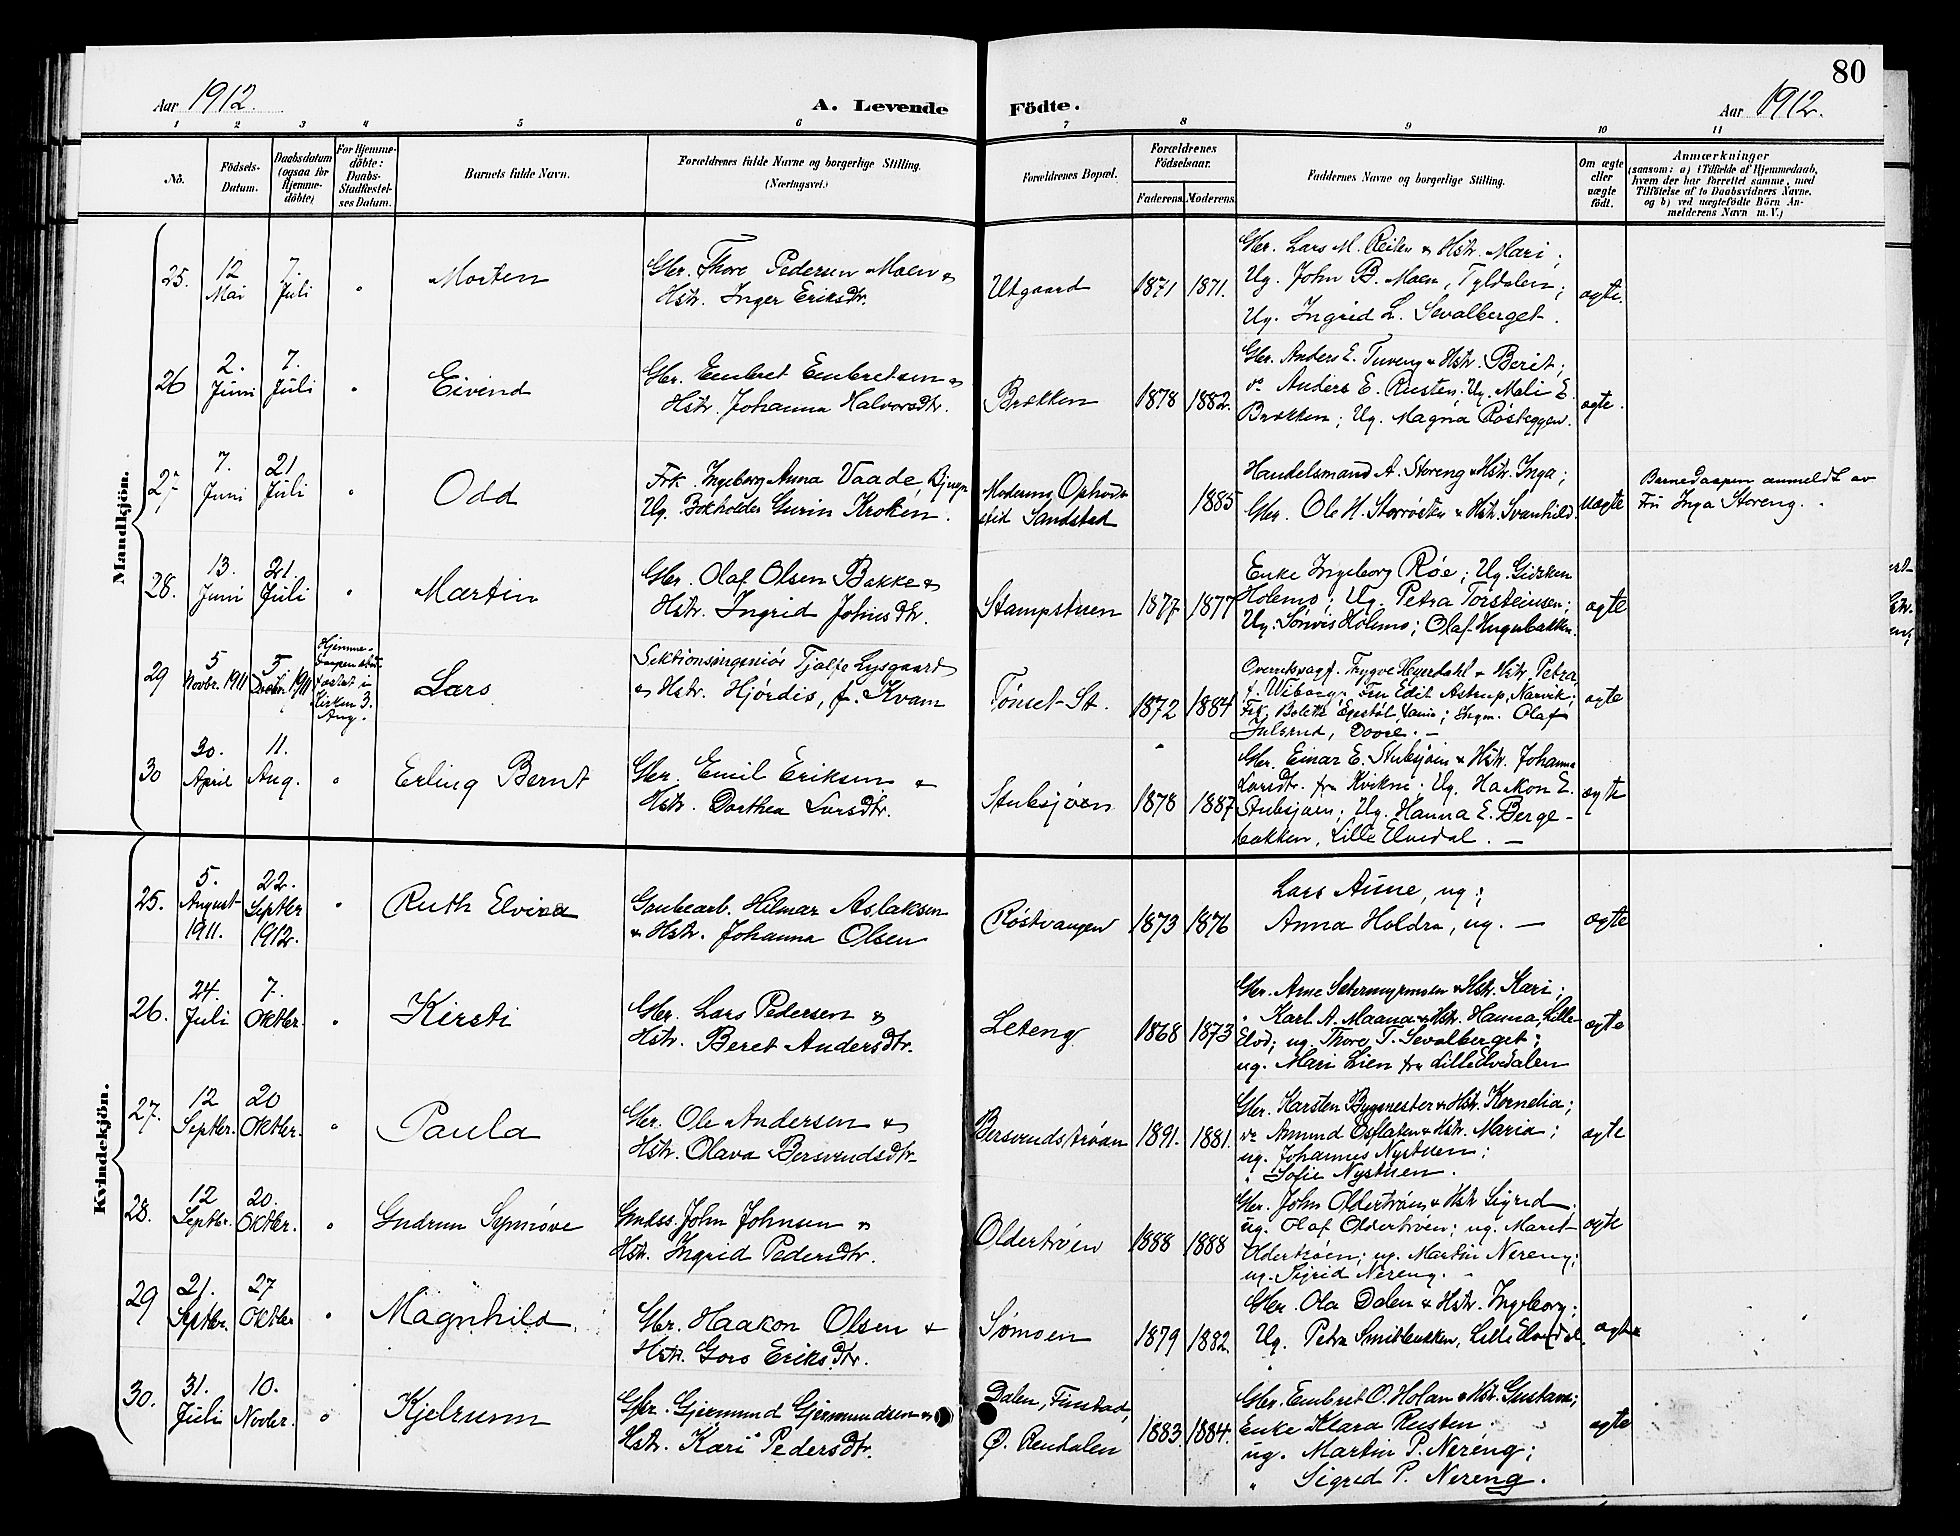 80
Aar 1912.
A. Levende
Födte.
Aar 1912.
1 2 3 4 5 6 7 8 9 10 11
No.
Födsels-
Datum.
Daabsdatum
(ogsaa for
Hjemme-
döbte)
For Hjemme-
döbte:
Daabs-
Stadfæstel-
ses Datum.
Barnets fulde Navn.
Forældrenes fulde Navne og borgerlige Stilling.
(Næringsvei.)
Forældrenes Bopæl.
Forældrenes
Födselsaar.
Faderens. Moderens.
Faddernes Navne og borgerlige Stilling.
Om ægte
eller
uægte
født.
Anmærkninger
(saasom: a) i Tilfælde af Hjemmedaab,
hvem der har forrettet samme, med
Tilföielse af to Daabsvidners Navne,
og b) ved uægtefödte Börn An-
melderens Navn m. V.)
Mandkjön.
25.
12
Mai
7.
Juli
"
Morten
Gbr. Thore Pedersen Moen &
Hstr. Inger Eriksdtr.
Utgaard
1871
1871.
Gbr. Lars M. Reiten & Hstr. Mari;
Ug. John B. Moen, Tyldalen;
Ug. Ingrid L. Sevalberget.
ægte.
26
2.
Juni
7.
Juli
"
Eivend
Gbr. Embret Embretsen &
Hstr. Johanna Halvorsdtr.
Brækken
1878
1882.
Gbr. Anders E. Tuveng & Hstr. Berit;
Anders E. Rusten; Ug. Mali E.
Brækken; Ug. Magna Røsteggen.
ægte.
27
7.
Juni
21
Juli
"
Odd
Frk. Ingeborg Anna Vaade,
Ug. Bokholder Gurin Kroken.
Moderens Opholds-
sted Sandstad
1885
Handelsmand A. Storeng & Hstr. Inga;
Gbr. Ole H. Storrøsten & Hstr. Svanhild.
uægte
Barnedaapen anmeldt av
Fru Inga Storeng.
28.
13.
Juni
21.
Juli
"
Martin
Gbr. Olaf Olsen Bakke &
Hstr. Ingrid Johnsdtr.
Stampstuen
1877
1877
Enke Ingeborg Røe; Ug. Gidsken
Holmo; Ug. Petra Torsteinsen;
Ug. Sønvis Holmo; Olaf Hagebakken.
ægte
29
5
Novbr. 1911
5
Decbr. 1911
Hjemme-
daapen stad-
fæstet i
Kirken 3.
Aug.
Lars
Sektionsingeniör Tjalfe Lysgaard
& Hstr. Hjördis, f. Kvam
Tönset St.
1872
1884
Trygve Heyerdahl & Hstr. Petra
f. Wiborg; Fru Edit Astrup, Narvik;
Frk. Bolette Egestöl, Ingn. Olaf
Julsrud, Dovre. —
ægte
30
30.
April
11.
Aug.
"
Erling Bernt
Gbr. Emil Eriksen &
Hstr. Dorthea Larsdtr.
Stubsjöen
1878
1887
Gbr. Einar E. Stubsjöen & Hstr. Johanna
Larsdtr. fra Kvikne; Ug. Haakon E.
Stubsjöen; Ug. Hanna E. Berge-
bakken, Lille Elvedal. —
ægte
Kvindekjön.
25.
5.
August
1911.
22.
Septbr
1912.
"
Ruth Elvira
Grubearb. Hilmar Aslaksen
& Hstr. Johanna Olsen
Röstvangen
1873
1876
Lars Aune, ug.;
Anna Holdra, ug. —
ægte
26.
24.
Juli
7.
Oktbr.
"
Kirsti
Gbr. Lars Pedersen &
Hstr. Beret Andersdtr.
Leteng
1868
1873
Gbr. Arne Setermyrmoen & Hstr. Kari;
" Karl A. Maana & Hstr. Hanna, Lille
Elvd; ug. Thore T. Sevalberget;
ug. Mari Lien fra Lille Elvedalen
ægte
27.
12
Septbr.
20
Oktbr.
"
Paula
Gbr. Ole Andersen &
Hstr. Olava Bersvendsdtr.
Bersvendströen
1891.
1881.
Gbr. Karsten Bygmester & Hstr. Kornelia;
Amund Osflaten & Hstr. Maria;
ug. Johannes Nystuen;
" Sofie Nystuen.
ægte
28.
12
Septbr.
20.
Oktbr.
"
Gudrun Synnöve
John Johnsen &
Hstr. Ingrid Pedersdtr.
Oldertröen
1888
1888
Gbr. John Oldertröen & Hstr Sigrid
ug. Olaf Oldertröen; ug. Marit
Oldertröen; ug. Martin Nereng;
ug. Sigrid Nereng.
ægte
29
21.
Septbr.
27
Oktbr
"
Magnhild
Gbr. Haakon Olsen &
Hstr. Goro Eriksdtr.
Sömoen
1879
1882.
Gbr. Ola Dalen & Hstr. Ingeborg;
Ug. Petra Smibakken, Lille Elvedal.
ægte
30.
31.
Juli
10.
Novbr.
"
Kjelrunn
Gbr. Gjermund Gjermundsen &
Hstr. Kari Pedersdtr.
Dalen, Finstad,
Ö. Rendalen
1883
1884.
Gbr. Embret O. Holan & Hstr. Gustava;
Enke Klara Rusten
ug. Martin P. Nereng;
" Sigrid P. Nereng.
ægte